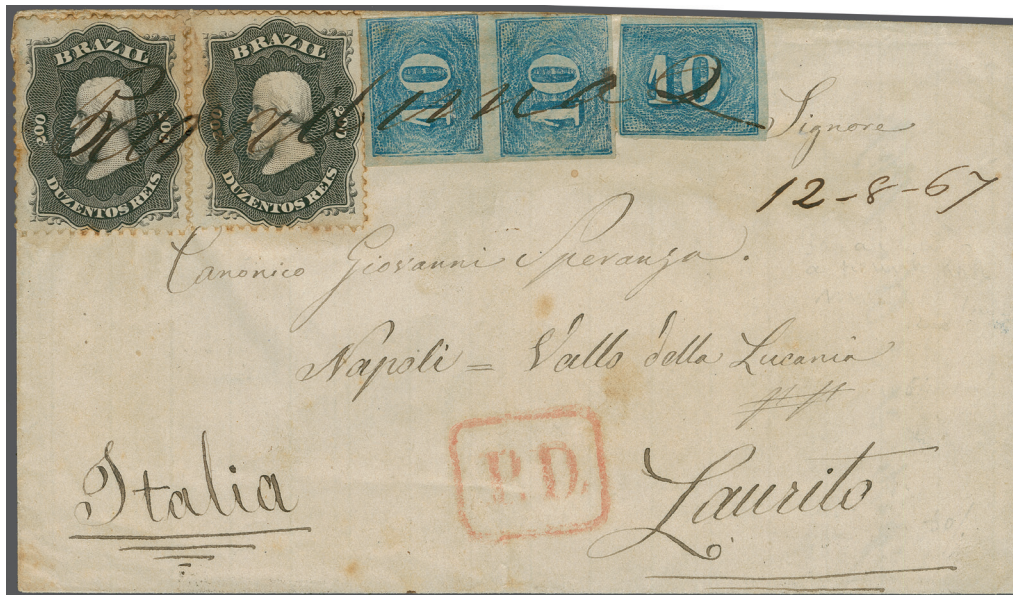 BRAZIL BRAZIL
200 200
DUZENTOS REIS DUZENTOS REIS
10 10 10
Signore
12-8-67
Canonico Giovanni Speranza.
Napoli = Vallo della Lucania
P.D.
Italia
Laurito